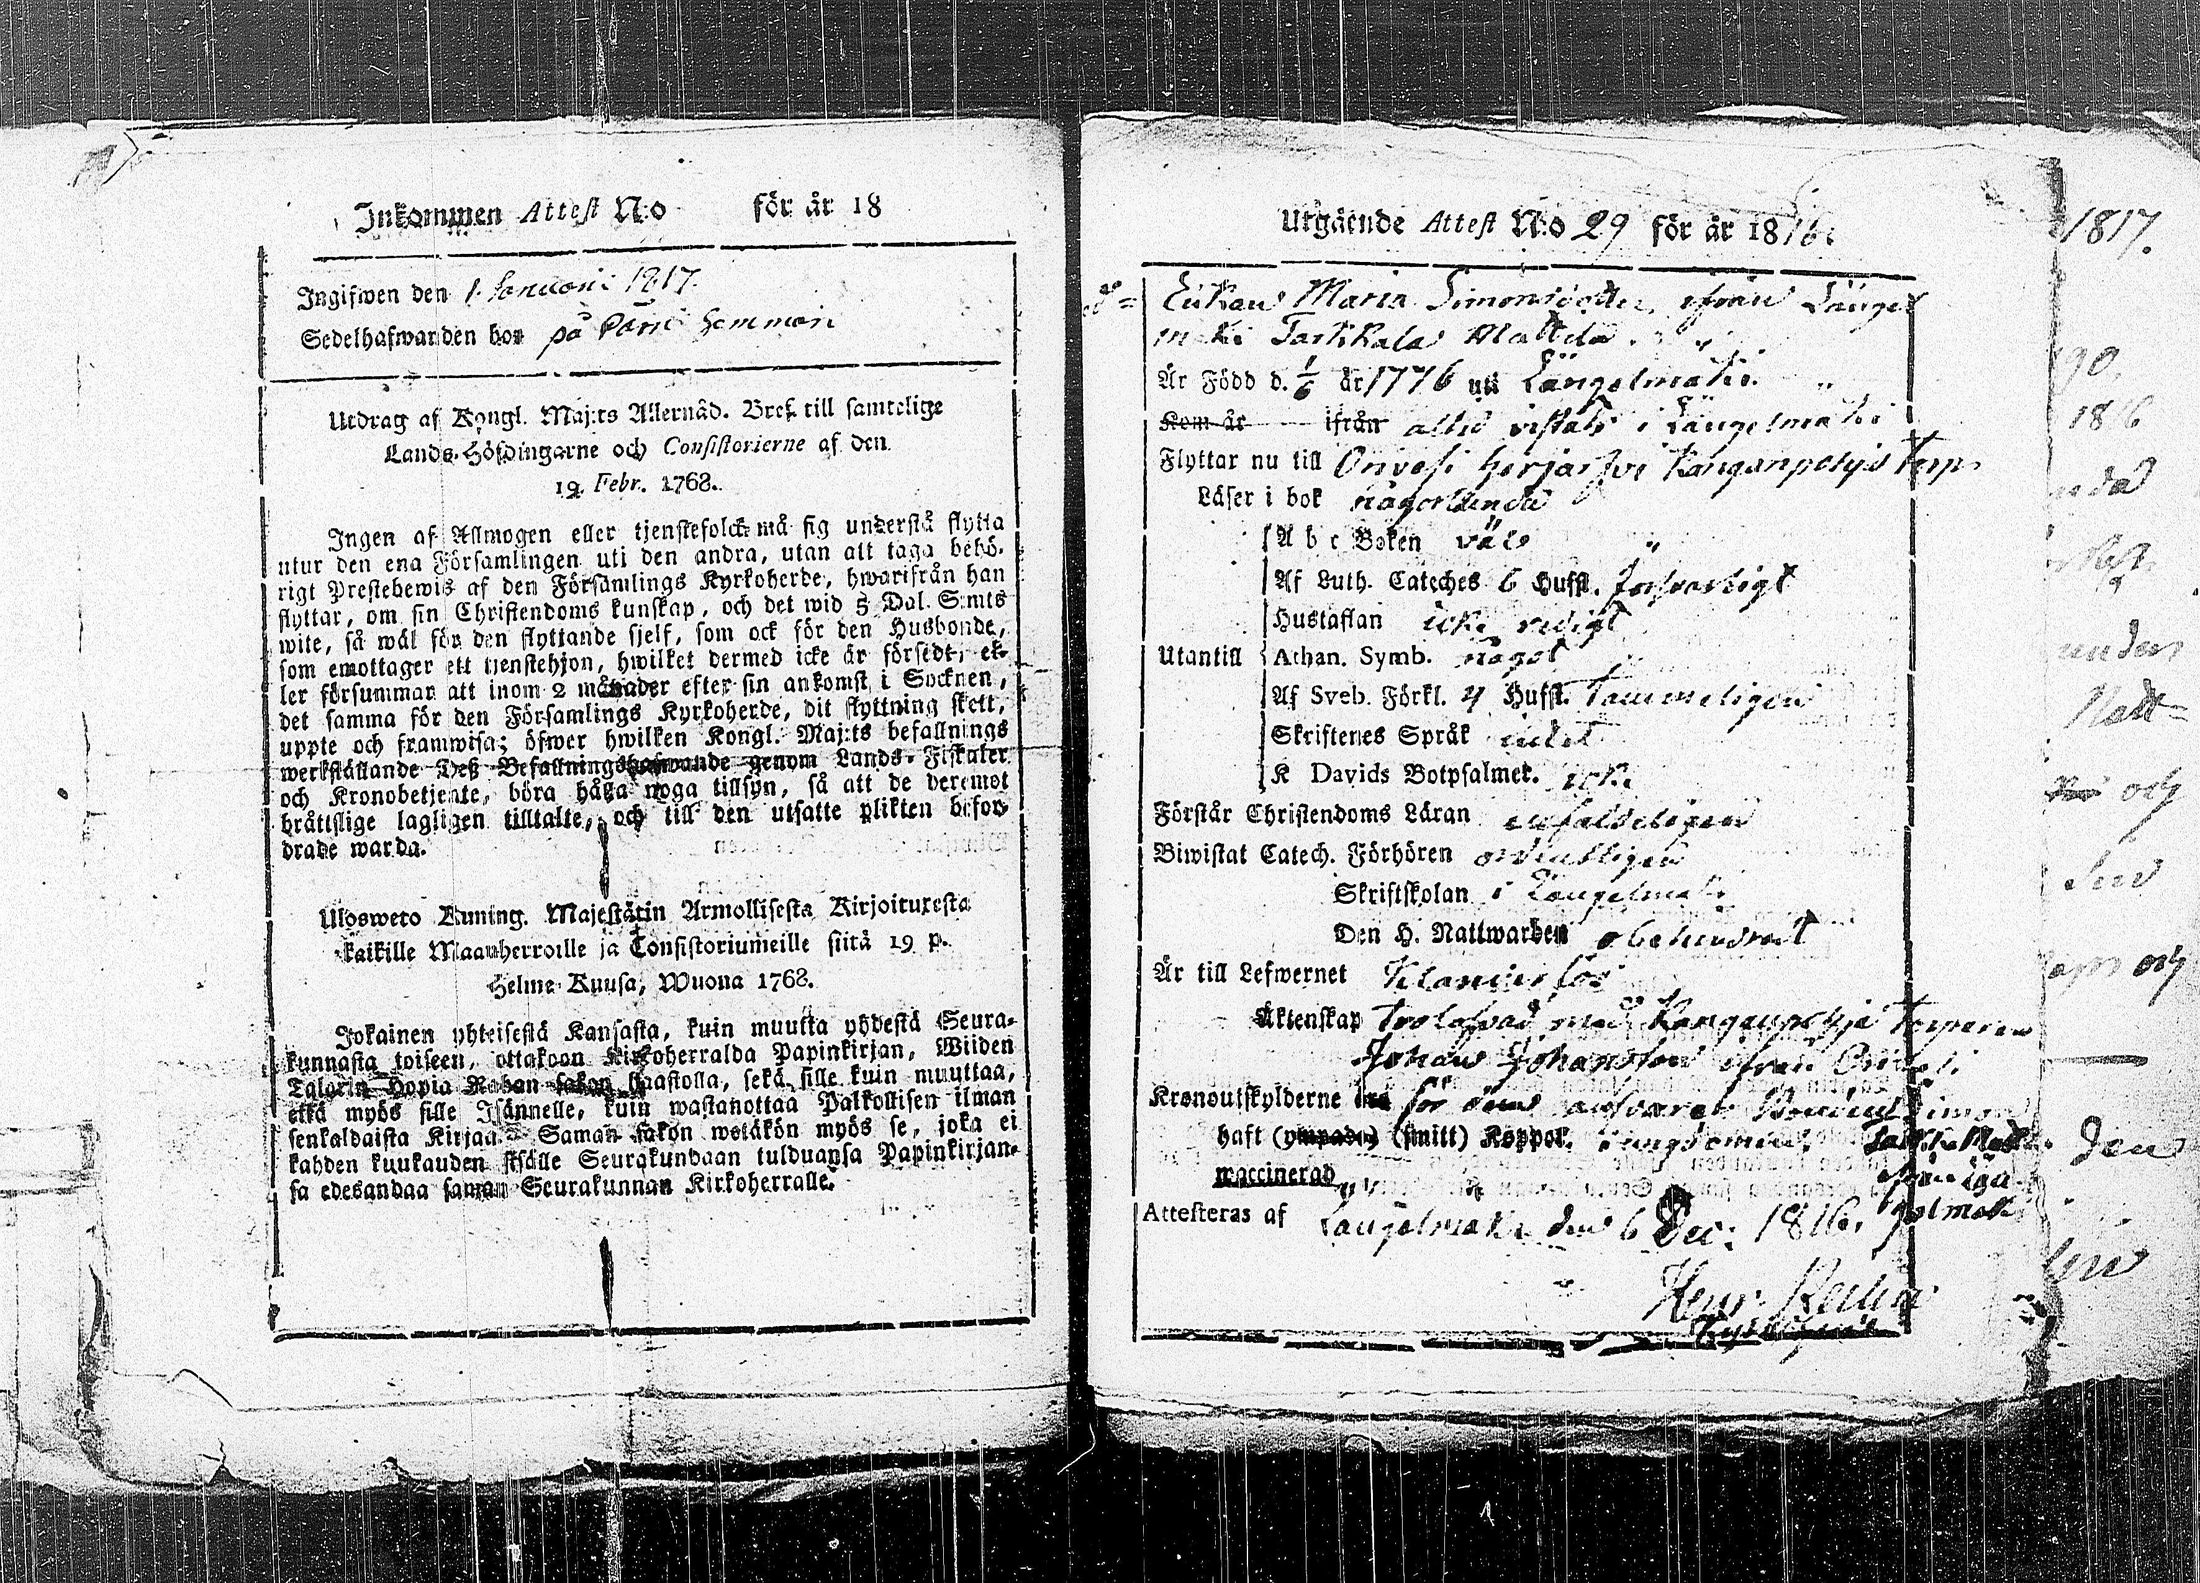 Inkommen Attest N:o för år 18
Ingifwen den 1. Januari 1817.
Sedelhafwanden bor på hemman
Utdrag af Kongl. Maj:ts Allernåd. Bref till samtelige
Lands-Höfdingarne och Consistorierne af den
19. Febr. 1768.
Ingen af Allmogen eller tjenstefolck må sig understå flytta
utur den ena Församlingen uti den andra, utan att taga behö-
rigt Prestebewis af den Församlings Kyrkoherde, hwarifrån han
flyttar, om sin Christendoms kunskap, och det wid 5 Dal. S:mts
wite, så wäl för den flyttande sjelf, som ock för den Husbonde,
som emottager ett tjenstehjon, hwilket dermed icke är försedt, el-
ler försummar att inom 2 månader efter sin ankomst i Socknen,
det samma för den Församlings Kyrkoherde, dit flyttning skett,
uppte och framwisa; öfwer hwilken Kongl. Maj:ts befallnings
werkställande Deß Befallningshafwande genom Lands-Fiskaler
och Kronobetjente, böra hålla noga tillsyn, så att de deremot
bråttslige lagligen tilltalte, och till den utsatte plikten befor-
drade warda.
Ulosweto Kuning. Majestätin Armollisesta Kirjoituxesta
kaikille Maanherroille ja Consistoriumeille siitä 19 p.
Helme-Kuusa, Wuona 1768.
Jokainen yhteisestä Kansasta, kuin muutta yhdestä Seura-
kunnasta toiseen, ottakoon Kirkoherralda Papinkirjan, Wiiden
Talarin Hopia Rahan sakon haastolla, sekä sille kuin muuttaa,
että myös sille Isännelle, kuin wastanottaa Palkollisen ilman
senkaldaista Kirjaa. Saman sakon wetäkön myös se, joka ei
kahden kuukauden sisälle Seurakundaan tulduansa Papinkirjan-
sa edesandaa saman Seurakunnan Kirkoherralle.
Utgående Attest N:o 29 för år 1816.
Enkan Maria Simonsdotter ifrån Längel
mäki Mattila
Är Född d. 1/6 år 1776 uti Längelmäki.
Kom år ifrån altid vistats i Längelmäki
Flyttar nu till Orivesi Torp
Läser i bok någorlunda
A b c Boken väl
Af Luth. Cateches 6 Hufst. försvarligt
Hustaflan icke redigt
Utantill Athan. Symb. något
Af Sveb. Förkl. 4 Hufst. Tämmeligen
Skriftenes Språk intet
K Davids Botpsalmer. icke
Förstår Christendoms Läran enfaldeligen
Biwistat Catech. Förhören ordentligen
Skriftskolan i Längelmäki
Den H. Nattwarden obehindrat
Är till Lefwernet Klanderlös
Äktenskap Trolofvad med Torparen
Johan Johansson ifrån Orivesi.
Kronoutskylderne för dem ansvarar Bonden Simon
haft (ympade) (smitt) Koppor. i ungdomen.
waccinerad ifrån Län
Attesteras af Längelmäki den 6 Dec: 1816. gelmäki
Henr.
1817.
90.
1816
och
och
Den